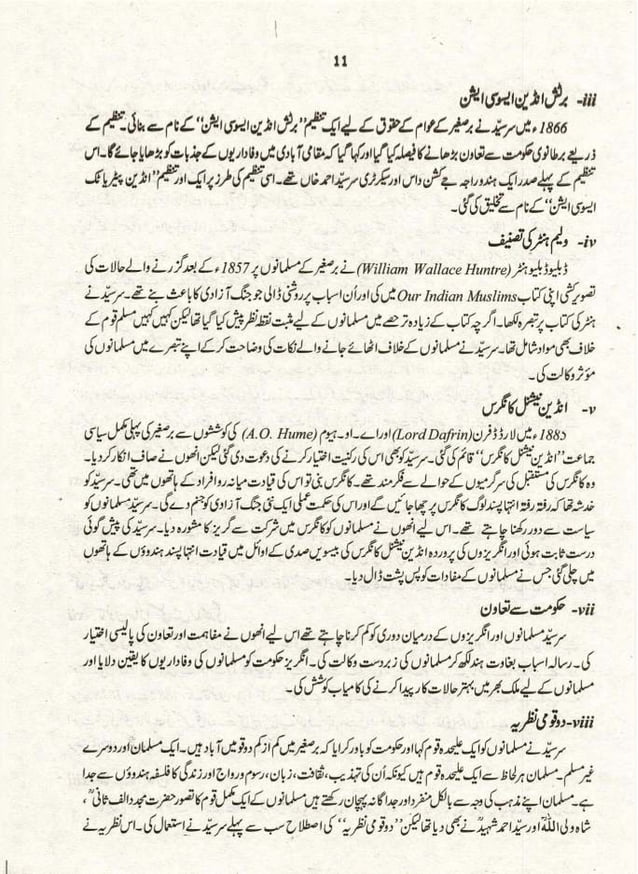 11
iii- برٹش انڈین ایسوسی ایشن
1866ء میں سرسیّد نے برصغیر کے عوام کے حقوق کے لیے ایک تنظیم ”برٹش انڈین ایسوسی ایشن“ کے نام سے بنائی۔ تنظیم کے
ذریعے برطانوی حکومت سے تعاون بڑھانے کا فیصلہ کیا گیا اور کہا گیا کہ مقامی آبادی میں وفاداریوں کے جذبات کو بڑھایا جائے گا۔ اس
تنظیم کے پہلے صدر ایک ہندو راجہ جے کشن داس اور سیکرٹری سرسیّد احمد خاں تھے۔ اسی تنظیم کی طرز پر ایک اور تنظیم ”انڈین پیٹریاٹک
ایسوسی ایشن“ کے نام سے تخلیق کی گئی۔
iv- ولیم ہنٹر کی تصنیف
ڈبلیو ڈبلیو ہنٹر (William Wallace Huntre) نے برصغیر کے مسلمانوں پر 1857ء کے بعد گزرنے والے حالات کی
تصویر کشی اپنی کتاب Our Indian Muslims میں کی اور اُن اسباب پر روشنی ڈالی جو جنگ آزادی کا باعث بنے تھے۔ سرسیّد نے
ہنٹر کی کتاب پر تبصرہ لکھا۔ اگرچہ کتاب کے زیادہ تر حصے میں مسلمانوں کے لیے مثبت نقطۂ نظر پیش کیا گیا تھا لیکن کہیں کہیں مسلم قوم کے
خلاف بھی مواد شامل تھا۔ سرسیّد نے مسلمانوں کے خلاف اٹھائے جانے والے نکات کی وضاحت کر کے اپنے تبصرے میں مسلمانوں کی
مؤثر وکالت کی۔
v- انڈین نیشنل کانگرس
1885ء میں لارڈ ڈفرن (Lord Dafrin) اور اے۔ او۔ ہیوم (A.O. Hume) کی کوششوں سے برصغیر کی پہلی مکمل سیاسی
جماعت ”انڈین نیشنل کانگرس“ قائم کی گئی۔ سرسیّد کو بھی اس کی رکنیت اختیار کرنے کی دعوت دی گئی لیکن انھوں نے صاف انکار کر دیا۔
وہ کانگرس کی مستقبل کی سرگرمیوں کے حوالے سے فکرمند تھے۔ کانگرس بنی تو اس کی قیادت میانہ رو افراد کے ہاتھوں میں تھی۔ سرسیّد کو
خدشہ تھا کہ رفتہ رفتہ انتہا پسند لوگ کانگرس پر چھا جائیں گے اور اس کی حکمت عملی ایک نئی جنگ آزادی کو جنم دے گی۔ سرسیّد مسلمانوں کو
سیاست سے دور رکھنا چاہتے تھے۔ اس لیے انھوں نے مسلمانوں کو کانگرس میں شرکت سے گریز کا مشورہ دیا۔ سرسیّد کی پیش گوئی
درست ثابت ہوئی اور انگریزوں کی پروردہ انڈین نیشنل کانگرس کی بیسویں صدی کے اوائل میں قیادت انتہا پسند ہندوؤں کے ہاتھوں
میں چلی گئی جس نے مسلمانوں کے مفادات کو پس پشت ڈال دیا۔
vii- حکومت سے تعاون
سرسیّد مسلمانوں اور انگریزوں کے درمیان دوری کو کم کرنا چاہتے تھے اس لیے انھوں نے مفاہمت اور تعاون کی پالیسی اختیار
کی۔ رسالہ اسباب بغاوت ہند لکھ کر مسلمانوں کی زبردست وکالت کی۔ انگریز حکومت کو مسلمانوں کی وفاداریوں کا یقین دلایا اور
مسلمانوں کے لیے ملک بھر میں بہتر حالات کار پیدا کرنے کی کامیاب کوشش کی۔
viii- دو قومی نظریہ
سرسیّد نے مسلمانوں کو ایک علیحدہ قوم کہا اور حکومت کو باور کرایا کہ برصغیر میں کم از کم دو قومیں آباد ہیں۔ ایک مسلمان اور دوسرے
غیر مسلم۔ مسلمان ہر لحاظ سے ایک علیحدہ قوم ہیں کیونکہ اُن کی تہذیب، ثقافت، زبان، رسوم و رواج اور زندگی کا فلسفہ ہندوؤں سے جدا
ہے۔ مسلمان اپنے مذہب کی وجہ سے بالکل منفرد اور جداگانہ پہچان رکھتے ہیں مسلمانوں کے ایک مکمل قوم کا تصور حضرت مجدد الف ثانیؒ،
شاہ ولی اللہؒ اور سیّد احمد شہیدؒ نے بھی دیا تھا لیکن ”دو قومی نظریہ“ کی اصطلاح سب سے پہلے سرسیّد نے استعمال کی۔ اس نظریہ نے